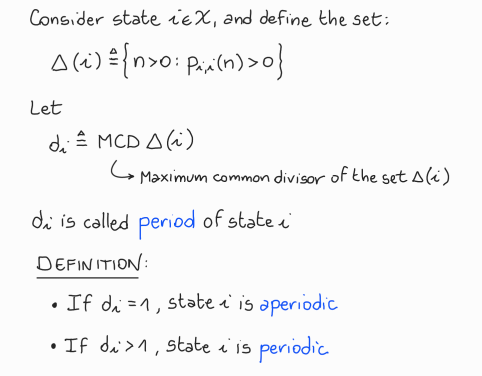 Consider state i∈X, and define the set:
Δ(i) ≜ {n>0: p_{i,i}(n)>0}
Let
d_i ≜ MCD Δ(i)
↳ Maximum common divisor of the set Δ(i)
d_i is called period of state i
DEFINITION:
• If d_i=1, state i is aperiodic
• If d_i>1, state i is periodic